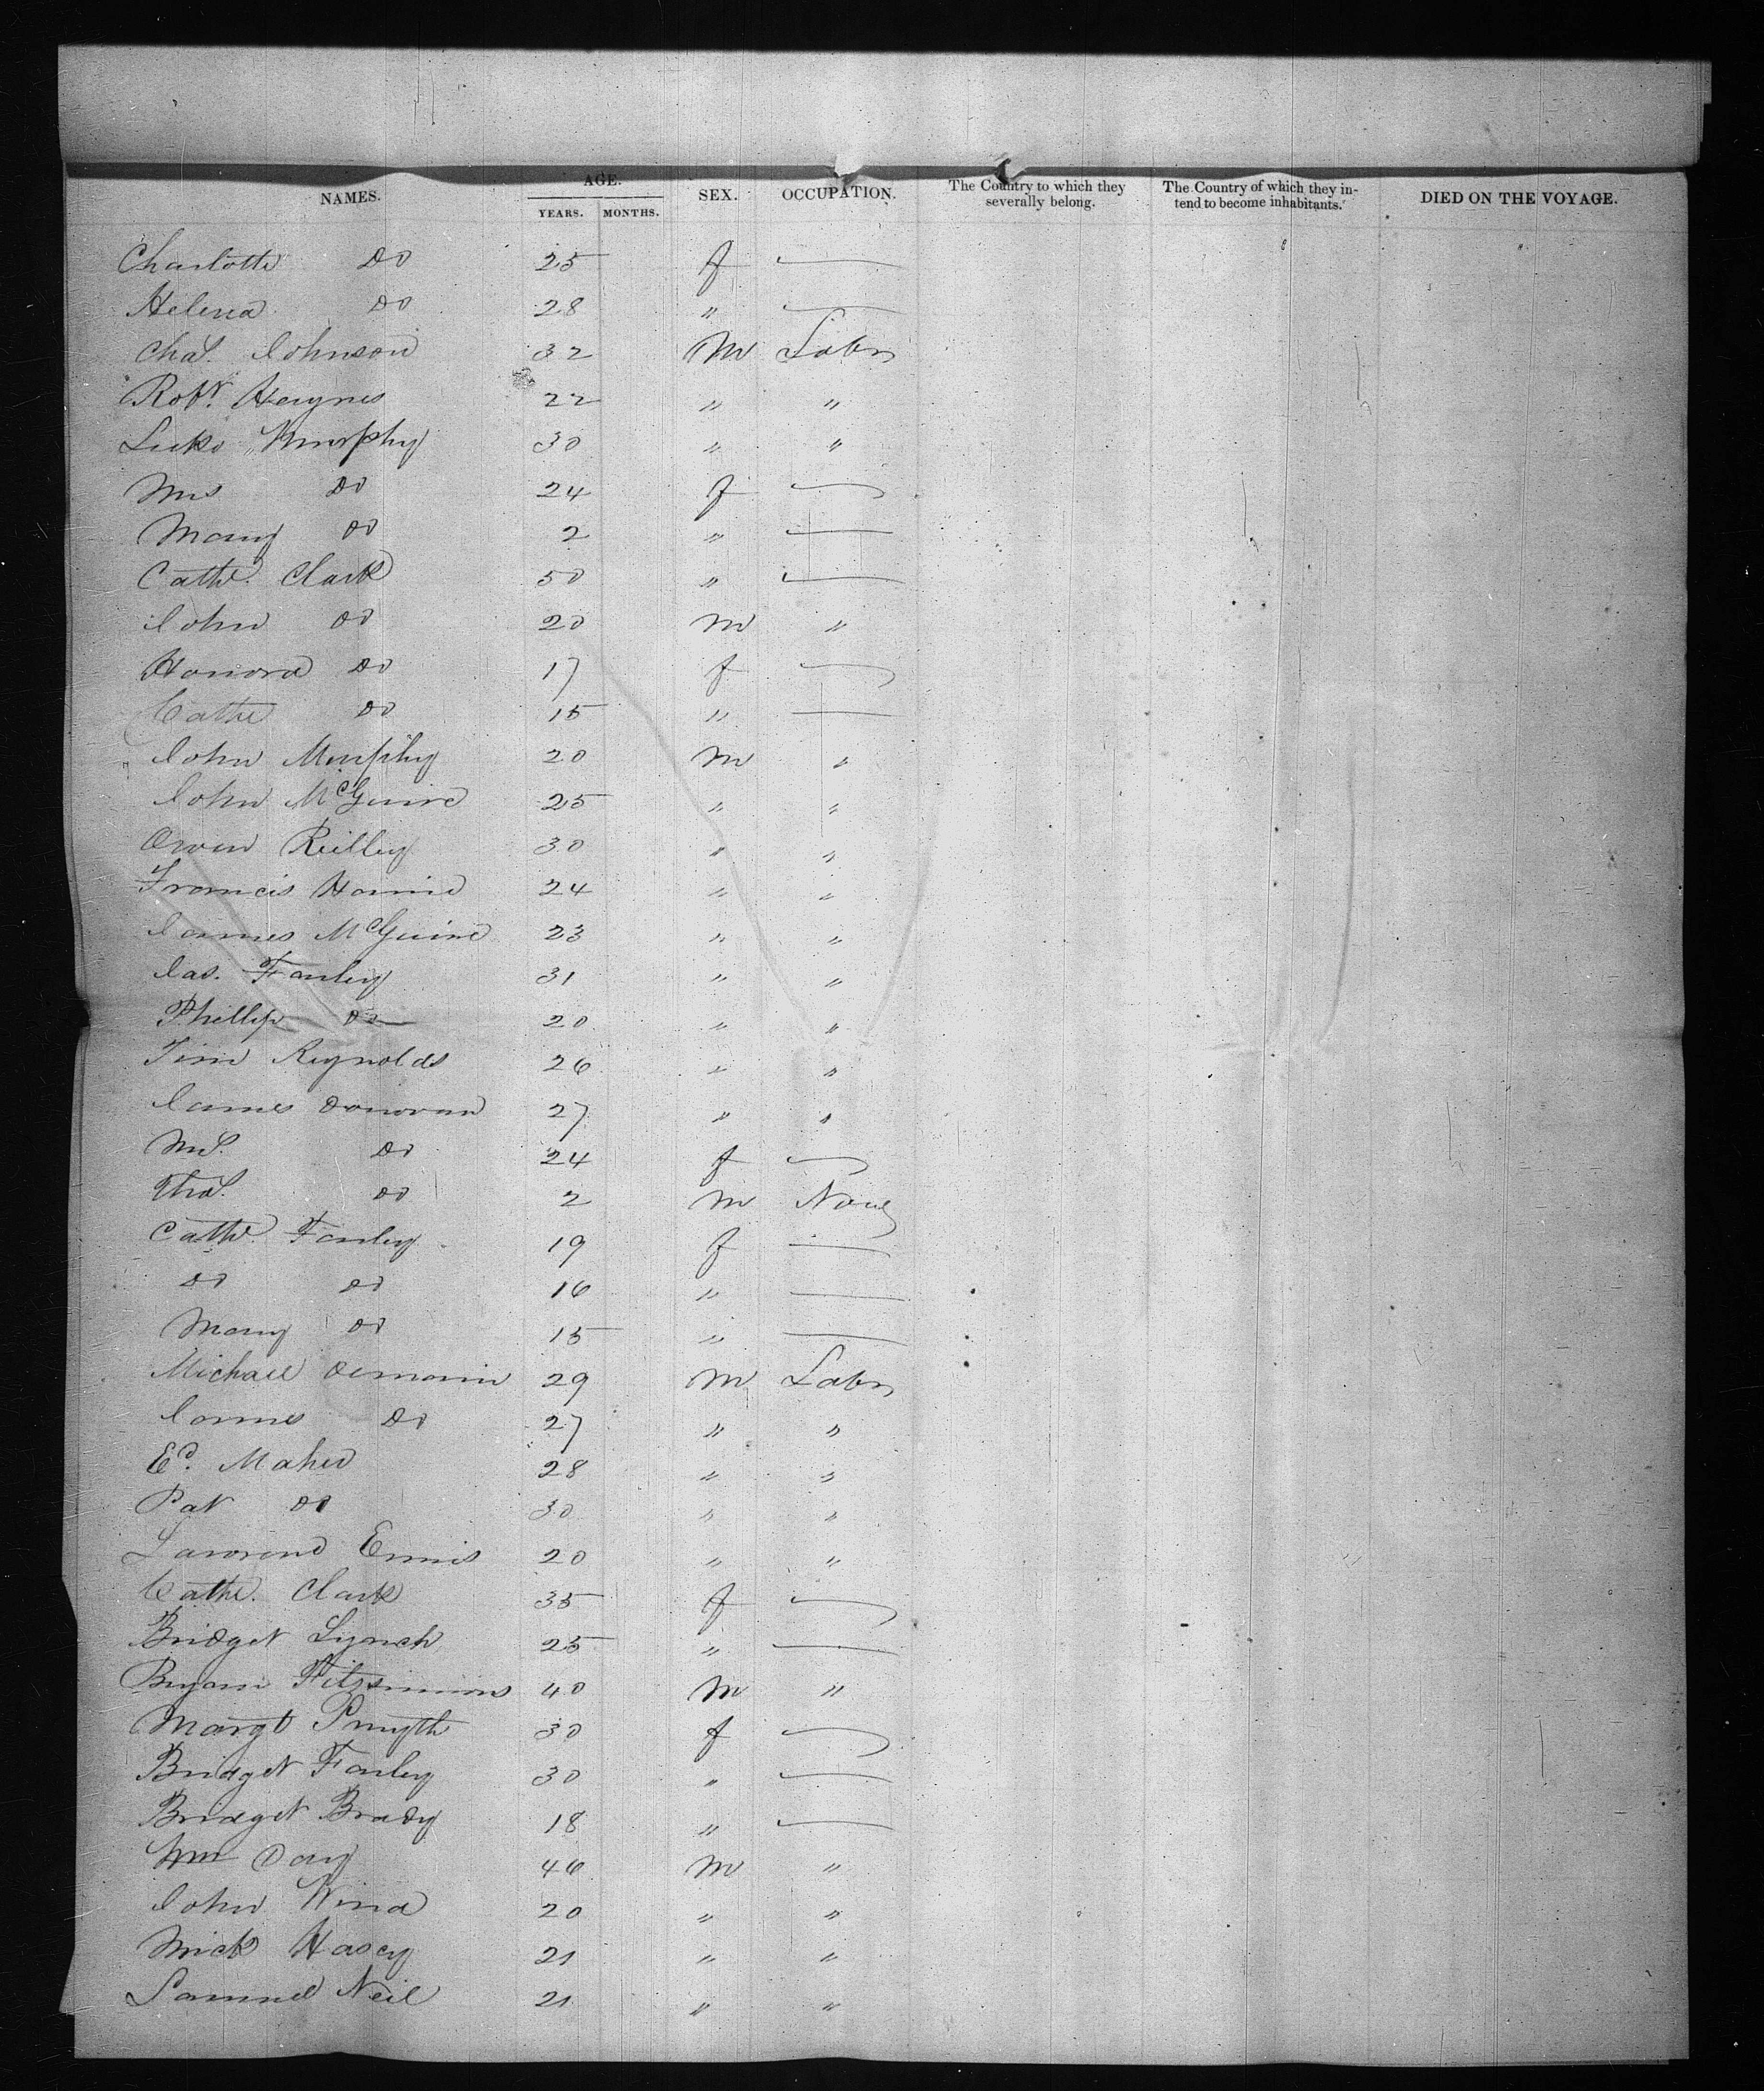 NAMES. AGE. SEX. OCCUPATION. The Country to which they severally belong. The Country of which they in-tend to become inhabitants. DIED ON THE VOYAGE.
YEARS. MONTHS.
Charlotte Do 25 f —
Helena Do 28 " —
Chas. Johnson 32 M Labr
Robt. Haynes 22 " "
Luke Murphy 30 " "
Mrs Do 24 f —
Mary Do 2 " —
Cathe. Clark 50 " —
John Do 20 M "
Honora Do 17 f —
Cathe Do 15 " —
John Murphy 20 M "
John McGuire 25 " "
Owen Reilley 30 " "
Francis 24 " "
James McGuire 23 " "
Jas. Farley 31 " "
Phillip Do 20 " "
Tim Reynolds 26 " "
James Donovan 27 " "
Mrs. Do 24 f —
Thos. Do 2 M None
Cathe. Farley 19 f —
Do Do 16 " —
Mary Do 15 " —
Michael 29 M Labr
James Do 27 " "
Ed. Maher 28 " "
Pat Do 30 " "
Lawrence Ennis 20 " "
Cathe. Clark 35 f —
Bridget Lynch 25 " —
Bryan Fitzsimmons 40 M "
Margt Smyth 30 f —
Bridget Farley 30 " —
Bridget Brady 18 " —
Wm Day 46 M "
John 20 " "
Mick 21 " "
Samuel Neil 21 " "